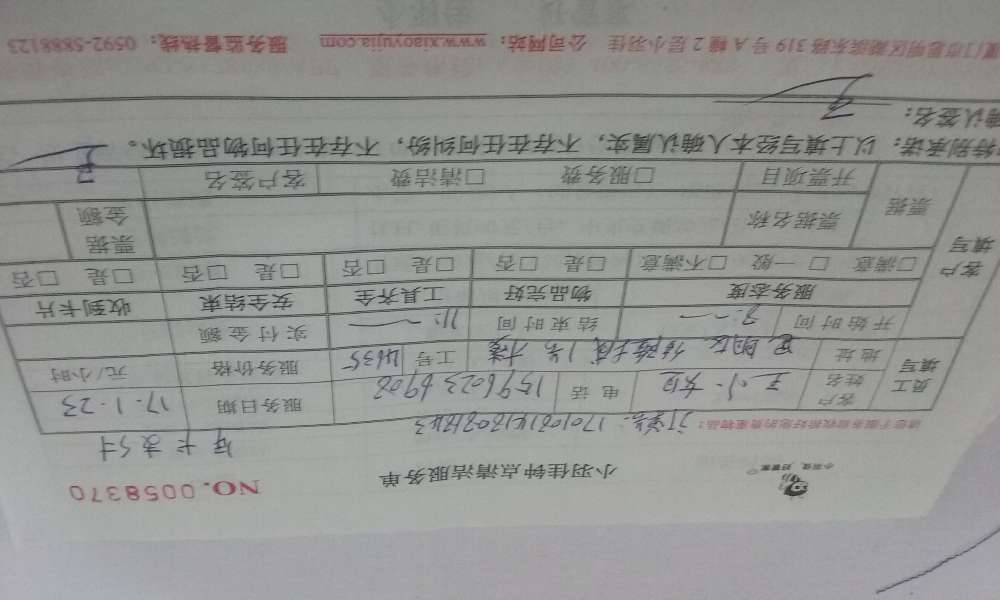 小羽佳 好管家
小羽佳钟点清洁服务单
NO. 0058370
年卡支付
请您于服务前收拾好您的贵重物品：订单号：17010814180818143
员工填写
客户姓名 王小姐 电话 15960236908 服务日期 17.1.23
地址 思明区 1号 工号 14635 服务价格 元/小时
开始时间 9:— 结束时间 11:— 实付金额
客户填写
服务态度 物品完好 工具齐全 安全结束 收到卡片
□满意 □一般 □不满意 □是 □否 □是 □否 □是 □否 □是 □否
票据 票据名称 票据金额
开票项目 □服务费 □清洁费 客户签名 王
特别承诺：以上填写经本人确认属实，不存在任何纠纷，不存在任何物品损坏。
确认签名： 王
厦门市思明区湖滨东路319号A幢2层小羽佳 公司网站：www.xiaoyujia.com 服务监督热线：0592-5888123